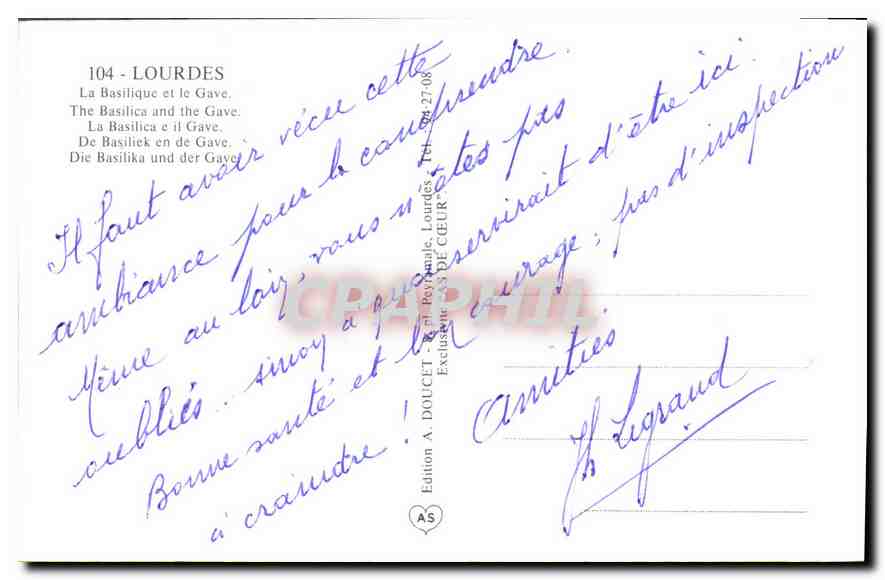 104 - LOURDES
La Basilique et le Gave.
The Basilica and the Gave.
La Basilica e il Gave.
De Basiliek en de Gave.
Die Basilika und der Gave.
Il faut avoir vécu cette
ambiance pour la comprendre.
Même au loin, vous n'êtes pas
oubliés.. sinon à quoi servirait d'être ici.
Bonne santé et bon courage; pas d'inspection
à craindre!
Amitiés
Th Legrand
Edition A. DOUCET - pl. Peyramale, Lourdes - Tél. 94-27-08
Exclusivité "AS DE CŒUR"
AS
CPAPHIL